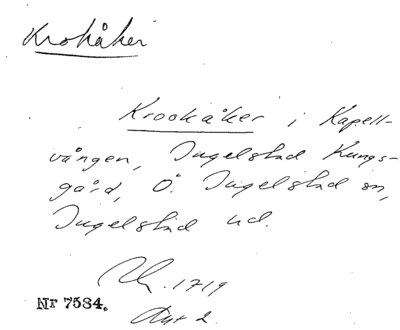 Krokåker
Krookåker i Kapell-
vången, Ingelstad Kungs-
gård, Ö. Ingelstad sn,
Ingelstad hd.
1719
Akt 2.
Nr 7584.